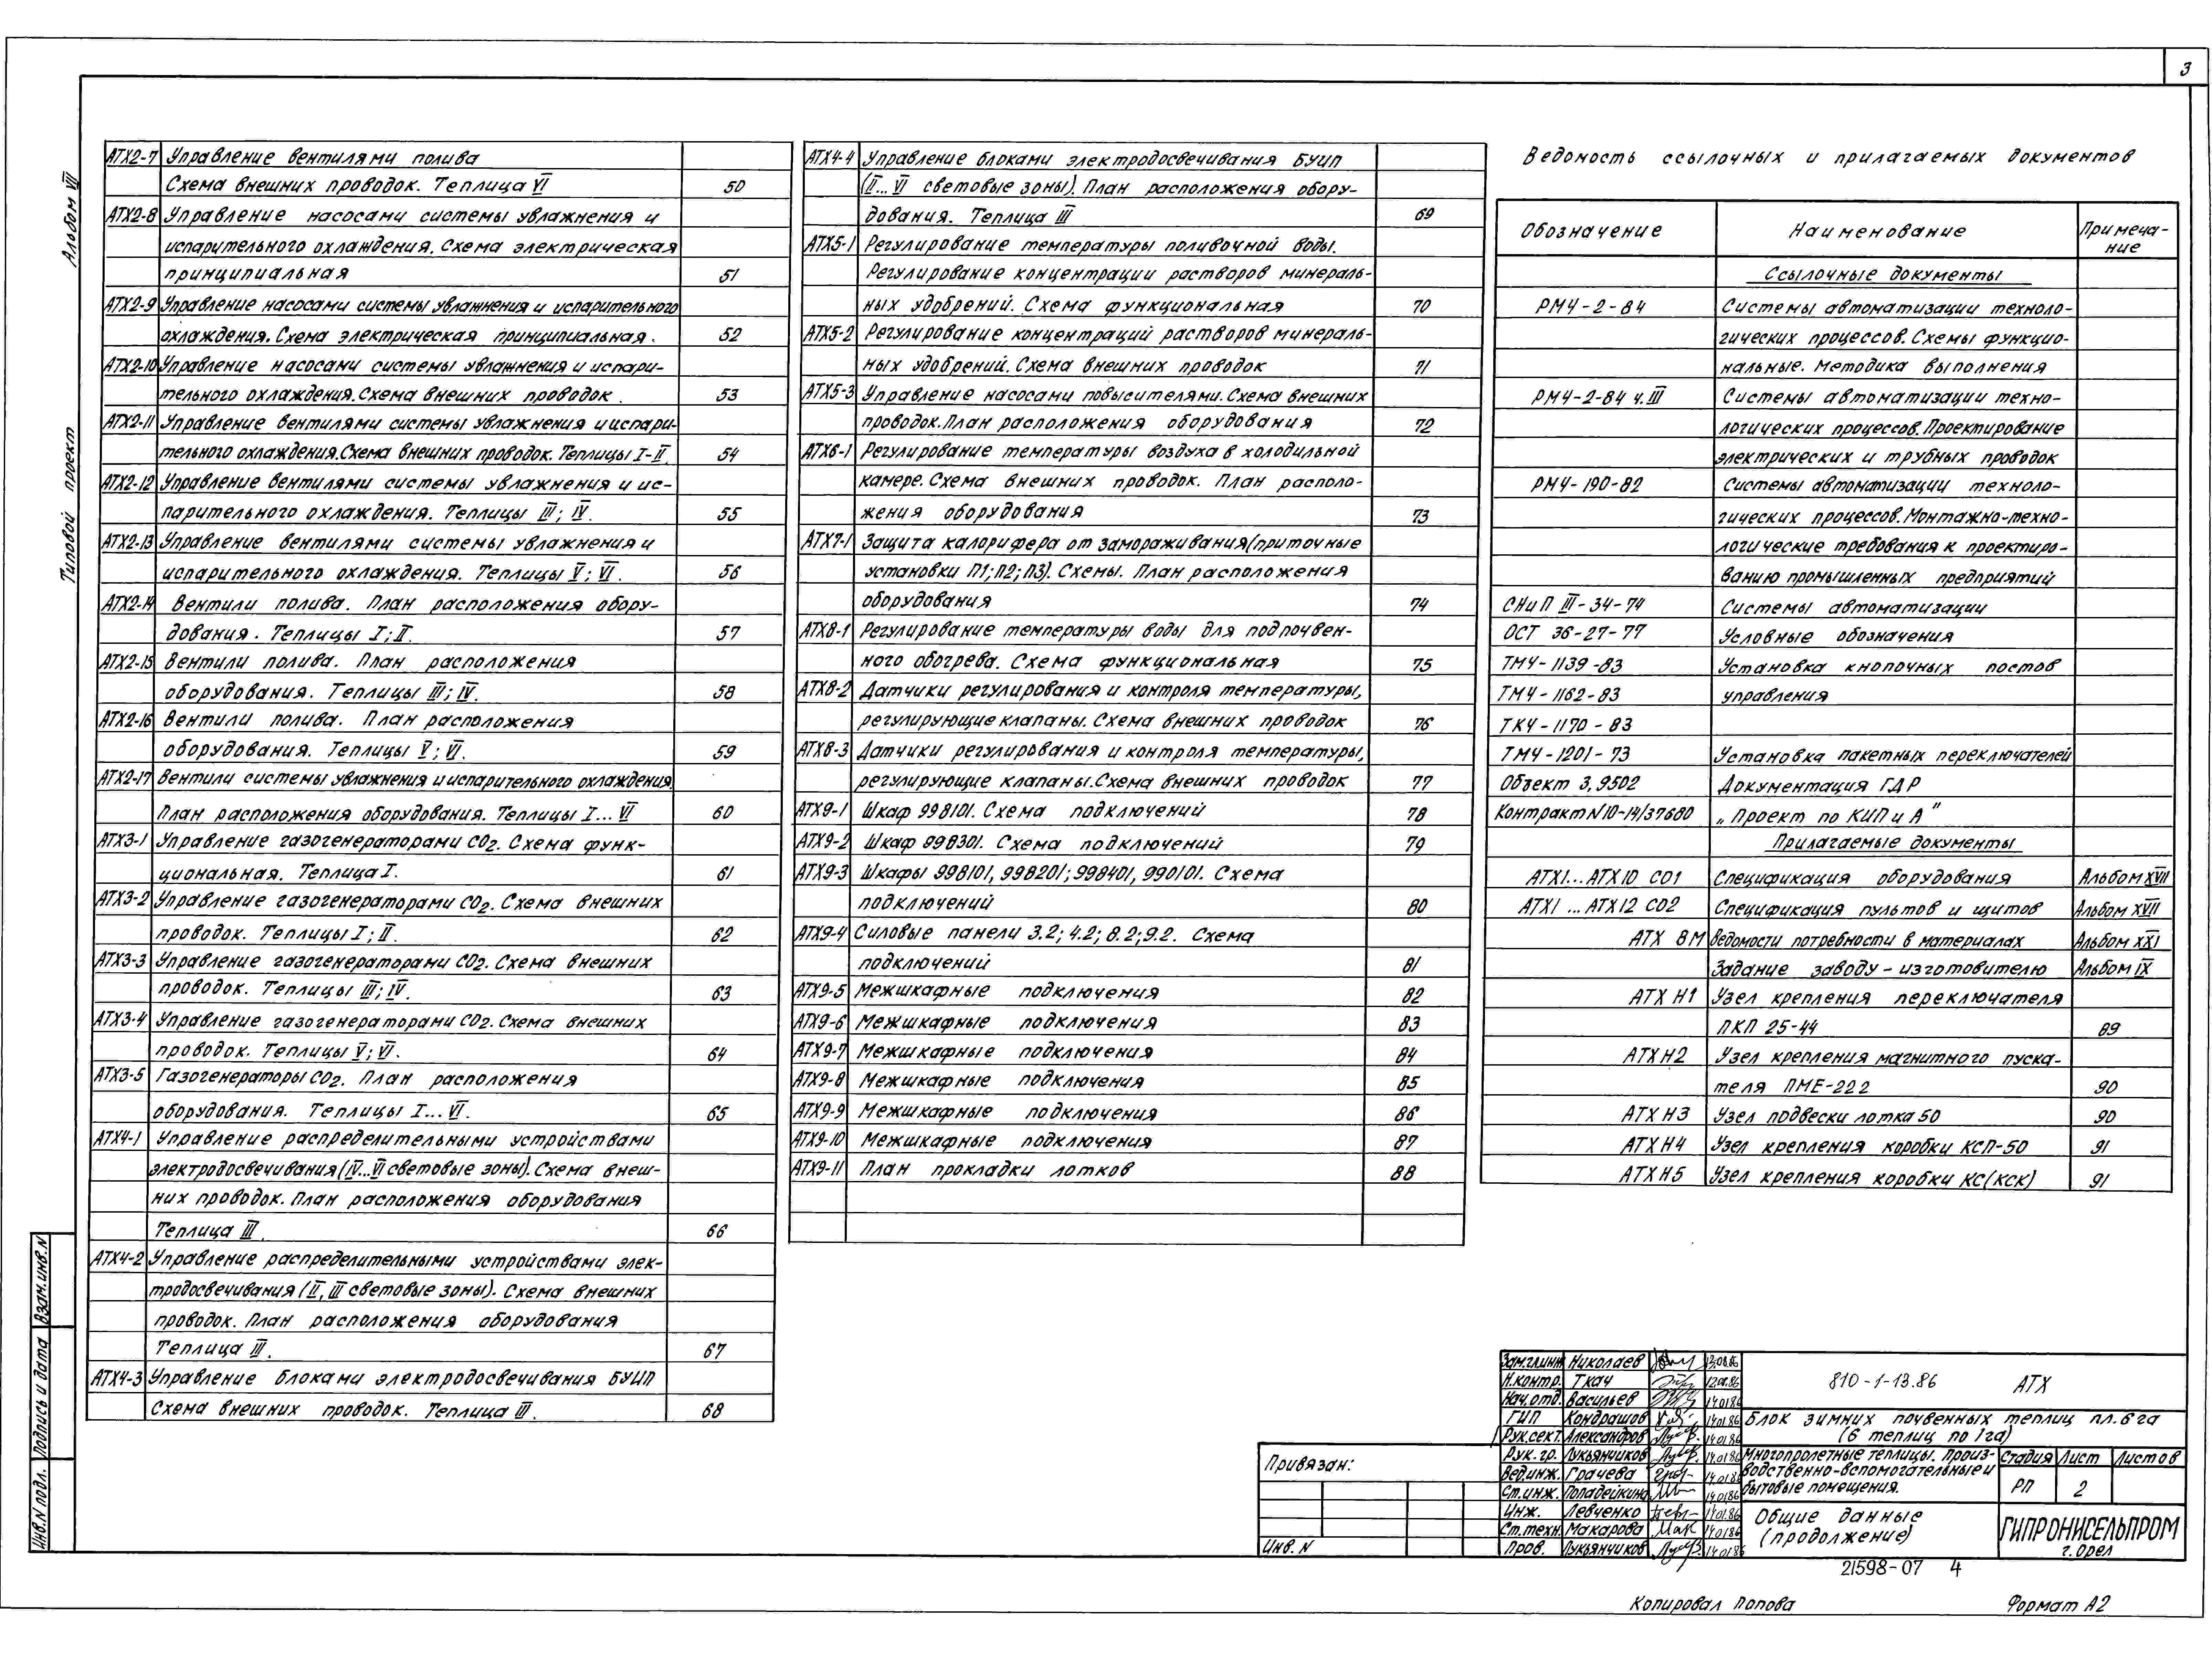 3
Альбом VII
Типовой проект
АТХ2-7 Управление вентилями полива
Схема внешних проводок. Теплица VI 50
АТХ2-8 Управление насосами системы увлажнения и
испарительного охлаждения. Схема электрическая
принципиальная 51
АТХ2-9 Управление насосами системы увлажнения и испарительного
охлаждения. Схема электрическая принципиальная. 52
АТХ2-10 Управление насосами системы увлажнения и испари-
тельного охлаждения. Схема внешних проводок. 53
АТХ2-11 Управление вентилями системы увлажнения и испари-
тельного охлаждения. Схема внешних проводок. Теплицы I-II. 54
АТХ2-12 Управление вентилями системы увлажнения и ис-
парительного охлаждения. Теплицы III; IV. 55
АТХ2-13 Управление вентилями системы увлажнения и
испарительного охлаждения. Теплицы V; VI. 56
АТХ2-14 Вентили полива. План расположения обору-
дования. Теплицы I; II. 57
АТХ2-15 Вентили полива. План расположения
оборудования. Теплицы III; IV. 58
АТХ2-16 Вентили полива. План расположения
оборудования. Теплицы V; VI. 59
АТХ2-17 Вентили системы увлажнения и испарительного охлаждения.
План расположения оборудования. Теплицы I...VI 60
АТХ3-1 Управление газогенераторами CO2. Схема функ-
циональная. Теплица I. 61
АТХ3-2 Управление газогенераторами CO2. Схема внешних
проводок. Теплицы I; II. 62
АТХ3-3 Управление газогенераторами CO2. Схема внешних
проводок. Теплицы III; IV. 63
АТХ3-4 Управление газогенераторами CO2. Схема внешних
проводок. Теплицы V; VI. 64
АТХ3-5 Газогенераторы CO2. План расположения
оборудования. Теплицы I...VI. 65
АТХ4-1 Управление распределительными устройствами
электродосвечивания (IV...VI световые зоны). Схема внеш-
них проводок. План расположения оборудования
Теплица III. 66
АТХ4-2 Управление распределительными устройствами элек-
тродосвечивания (II, III световые зоны). Схема внешних
проводок. План расположения оборудования
Теплица III. 67
АТХ4-3 Управление блоками электродосвечивания БУИП
Схема внешних проводок. Теплица III. 68
АТХ4-4 Управление блоками электродосвечивания БУИП
(II...VI световые зоны). План расположения обору-
дования. Теплица III 69
АТХ5-1 Регулирование температуры поливочной воды.
Регулирование концентрации растворов минераль-
ных удобрений. Схема функциональная 70
АТХ5-2 Регулирование концентраций растворов минераль-
ных удобрений. Схема внешних проводок 71
АТХ5-3 Управление насосами повысителями. Схема внешних
проводок. План расположения оборудования 72
АТХ6-1 Регулирование температуры воздуха в холодильной
камере. Схема внешних проводок. План располо-
жения оборудования 73
АТХ7-1 Защита калорифера от замораживания (приточные
установки П1; П2; П3). Схемы. План расположения
оборудования 74
АТХ8-1 Регулирование температуры воды для подпочвен-
ного обогрева. Схема функциональная 75
АТХ8-2 Датчики регулирования и контроля температуры,
регулирующие клапаны. Схема внешних проводок 76
АТХ8-3 Датчики регулирования и контроля температуры,
регулирующие клапаны. Схема внешних проводок 77
АТХ9-1 Шкаф 998101. Схема подключений 78
АТХ9-2 Шкаф 998301. Схема подключений 79
АТХ9-3 Шкафы 998101, 998201; 998401, 990101. Схема
подключений 80
АТХ9-4 Силовые панели 3.2; 4.2; 8.2; 9.2. Схема
подключений 81
АТХ9-5 Межшкафные подключения 82
АТХ9-6 Межшкафные подключения 83
АТХ9-7 Межшкафные подключения 84
АТХ9-8 Межшкафные подключения 85
АТХ9-9 Межшкафные подключения 86
АТХ9-10 Межшкафные подключения 87
АТХ9-11 План прокладки лотков 88
Ведомость ссылочных и прилагаемых документов
Обозначение Наименование Примеча-
ние
Ссылочные документы
РМ4-2-84 Системы автоматизации техноло-
гических процессов. Схемы функцио-
нальные. Методика выполнения
РМ4-2-84 ч. III Системы автоматизации техно-
логических процессов. Проектирование
электрических и трубных проводок
РМ4-190-82 Системы автоматизации техноло-
гических процессов. Монтажно-техно-
логические требования к проектиро-
ванию промышленных предприятий
СНиП III-34-74 Системы автоматизации
ОСТ 36-27-77 Условные обозначения
ТМ4-1139-83 Установка кнопочных постов
ТМ4-1162-83 управления
ТК4-1170-83
ТМ4-1201-73 Установка пакетных переключателей
Объект 3.9502 Документация ГДР
Контракт N10-14/37680 „Проект по КИП и А"
Прилагаемые документы
АТХ1...АТХ10 СО1 Спецификация оборудования Альбом XVII
АТХ1...АТХ12 СО2 Спецификация пультов и щитов Альбом XVII
АТХ ВМ Ведомости потребности в материалах Альбом XXI
Задание заводу-изготовителю Альбом IX
АТХ Н1 Узел крепления переключателя
ПКП 25-44 89
АТХ Н2 Узел крепления магнитного пуска-
теля ПМЕ-222 90
АТХ Н3 Узел подвески лотка 50 90
АТХ Н4 Узел крепления коробки КСП-50 91
АТХ Н5 Узел крепления коробки КС(КСК) 91
Взам.инв.N
Подпись и дата
Инв.N подл.
Привязан:
Инв. N
Зам.гл.инж Николаев 13.08.86
Н.контр. Ткач 12.01.86
Нач.отд. Васильев 14.01.86
ГИП Кондрашов 14.01.86
Рук.сект. Александров 14.01.86
Рук.гр. Лукьянчиков 14.01.86
Вед.инж. Грачева 14.01.86
Ст.инж. 14.01.86
Инж. Левченко 14.01.86
Ст.техн. Макарова 14.01.86
Пров. Лукьянчиков 14.01.86
810-1-13.86 АТХ
Блок зимних почвенных теплиц пл. 6 га
(6 теплиц по 1га)
Многопролетные теплицы. Произ-
водственно-вспомогательные и
бытовые помещения.
Стадия Лист Листов
РП 2
Общие данные
(продолжение)
ГИПРОНИСЕЛЬПРОМ
г. Орел
21598-07 4
Копировал Попова
Формат А2